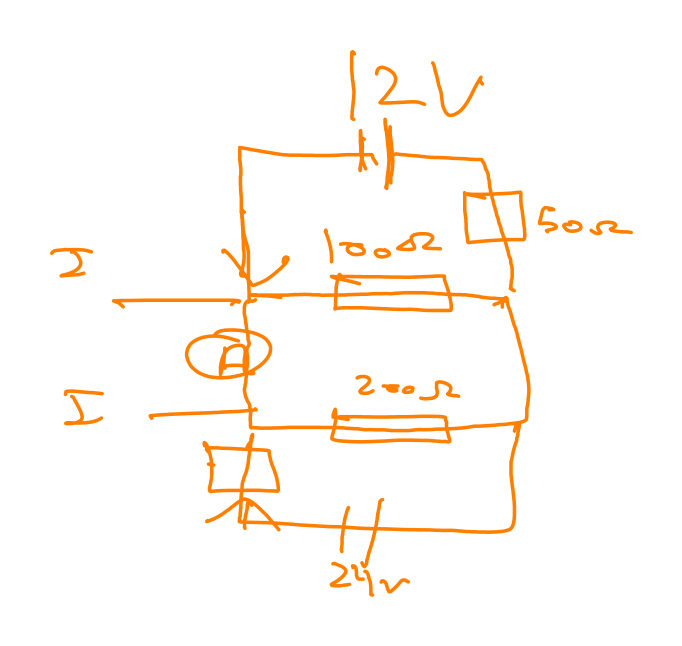 12V
50Ω
100Ω
I
I
200Ω
24V